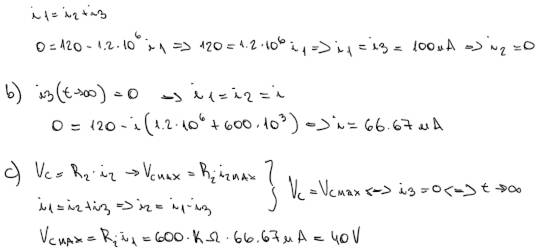 i1=i2+i3
0=120-1.2·10⁶ i1 => 120=1.2·10⁶ i1 => i1=i3=100uA => i2=0
b) i3(t→∞)=0 → i1=i2=i
0=120-i(1.2·10⁶+600·10³) => i=66.67uA
c) Vc=R2·i2 → Vcmax=R2·i2max } Vc=Vcmax <-> i3=0 <=> t→∞
i1=i2+i3 => i2=i1-i3
Vcmax=R2·i1=600·KΩ·66.67uA=40V